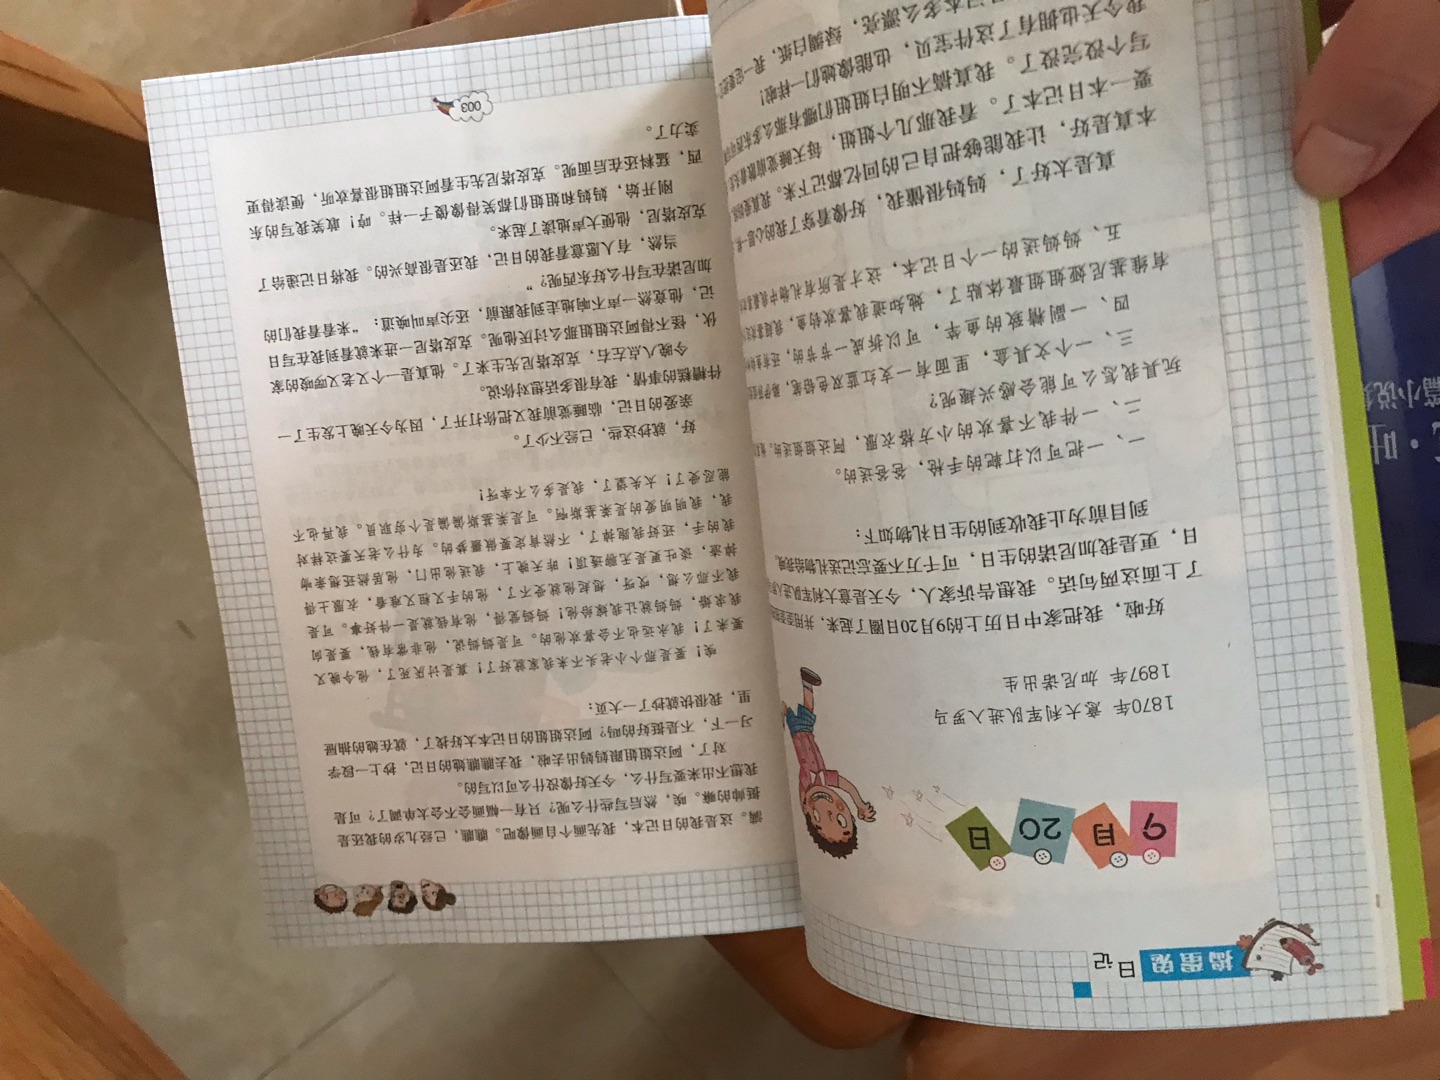 捣蛋鬼 日记
9月20日
1870年 意大利军队进入罗马
1897年 加尼诺出生
好啦，我把家中日历上的9月20日圈了起来，并用
了上面这两句话。我想告诉家人，今天是意大利军队进入
日，更是我加尼诺的生日，可千万不要忘记送礼物给我
到目前为止我收到的生日礼物如下：
一、一把可以打靶的手枪，爸爸送的。
二、一件我不喜欢的小方格衣服，阿达姐姐送的。
玩具我怎么可能会感兴趣呢？
三、一个文具盒，里面有一支红蓝双色铅笔，
四、一副精致的鱼竿，可以拆成一节节的，还有
有维基尼娅姐姐最体贴了，她知道我喜欢钓鱼，我
五、妈妈送的一个日记本，这才是所有礼物中
真是太好了，妈妈很懂我，好像看穿了我的心思
本真是好，让我能够把自己的回忆都记下来。我真
要一本日记本了。看那几个姐姐，每天睡觉前都
写个没完没了。我真搞不明白姐姐们哪有那么多
我今天也拥有了这件宝贝，也能像她们一样啦！
多么漂亮，绿绸白纸，我一定要
满。这是我的日记本，我先画个自画像吧。瞧瞧，已经九岁的我还是
挺帅的嘛。唉，然后写些什么呢？只有一幅画会不会太单调了？可是
我想不出来要写什么，今天好像没什么可以写的。
对了，阿达姐姐跟妈妈出去啦，我去瞧瞧她的日记，抄上一段学
习一下，不是挺好的吗？阿达姐姐的日记本太好找了，就在她的抽屉
里，我很快就抄了一大页：
唉！要是那个小老头不来我家就好了！真是讨厌死了，他今晚又
要来了！我永远也不会喜欢他的。可是妈妈说，他非常有钱，要是向
我求婚，妈妈就让我嫁给他！妈妈觉得，他有钱就是一件好事。可是
我不那么想，哎呀，想起他就受不了，他的手又粗又难看，衣服土得
掉渣，谈吐更是无聊透顶！昨天晚上，我送他出门，他居然还想亲吻
我的手，还好我跑掉了，不然肯定要做噩梦的。为什么老天要这样对
我，我明明爱的是莱基斯啊。可是莱基斯偏偏是个穷职员。我再也不
能忍受了！太失望了，我是多么不幸呀！
好，就抄这些，已经不少了。
亲爱的日记，临睡觉前我又把你打开了，因为今天晚上发生了一
件糟糕的事情，我有很多话想对你说。
今晚八点左右，克皮塔尼先生来了。他真是一个又老又啰唆的家
伙，怪不得阿达姐姐那么讨厌他呢。克皮塔尼一进来就看到我在写日
记，他竟然一声不响地走到我跟前，还尖声叫唤道：“来看看我们的
加尼诺在写什么好东西呢？”
当然，有人愿意看我的日记，我还是很高兴的。我将日记递给了
克皮塔尼，他便大声地读了起来。
刚开始，妈妈和姐姐们都笑得像傻子一样。哼！敢笑我写的东
西，猛料还在后面呢。克皮塔尼先生看阿达姐姐很喜欢听，便读得更
卖力了。
003